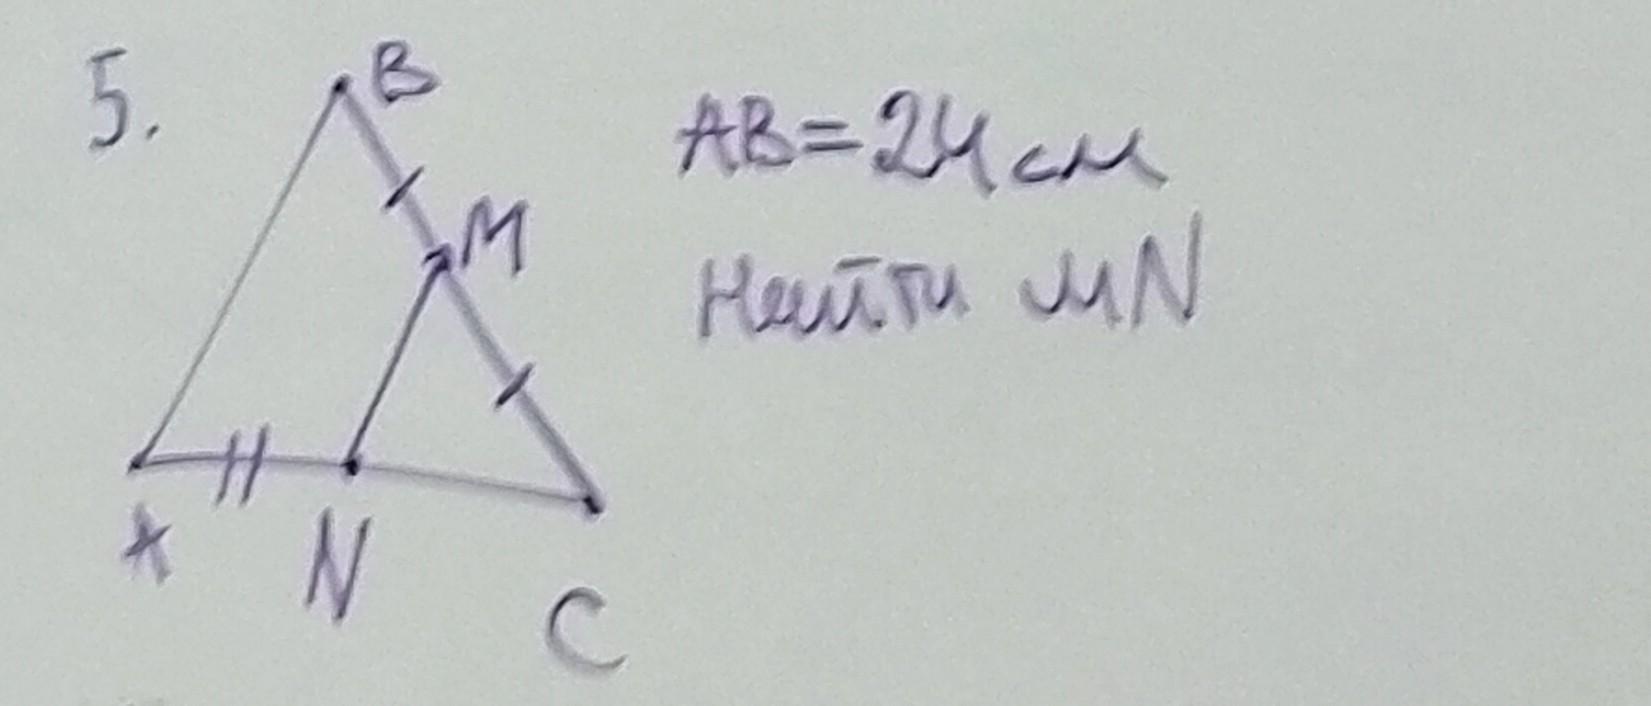 5.
B
AB=24см
M
Найти MN
A
N
C